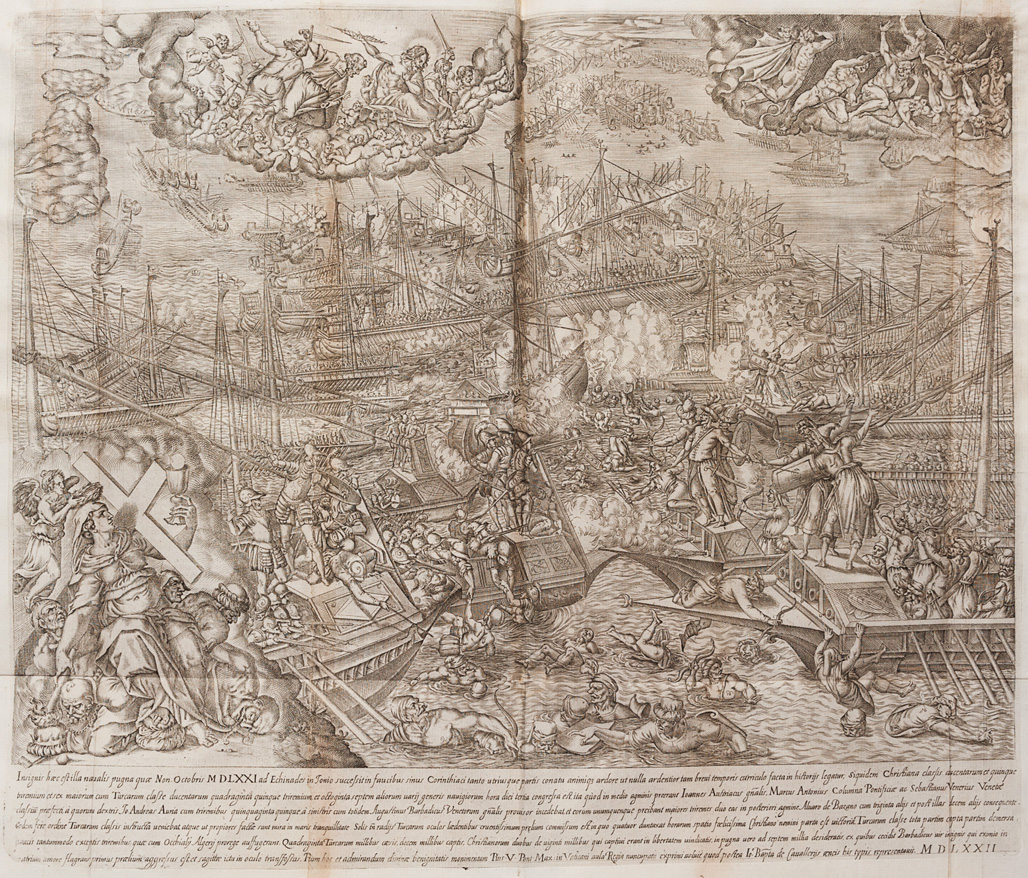 Insignis haec est illa navalis pugna quae Non. Octobris MDLXXI ad Echinades in Ionio successit in faucibus sinus Corinthiaci tanto utriusque partis conatu animiq; ardore ut nulla ardentior tam brevi temporis curriculo facta in historijs legatur, siquidem Christiana classis ducentarum et quinque
triremium et sex maiorum cum Turcarum classe ducentarum quadraginta quinque triremium, et octoginta septem aliorum varij generis navigiorum hora diei tertia congressa est ita quod in medio agminis praerant Ioannes Austriacus gñalis. Marcus Antonius Columna Pontificiae ac Sebastianus Venerius Venetae
classium praefecti, a quorum dextris Jo Andreas Auria cum triremibus quinquaginta quinque a sinistris cum totidem Augustinus Barbadicus Venetorum gñalis provisor incedebat, et eorum unumquenque praeibant maiores triremes duo eas in posteriori agmine Alvaro de Bazano cum triginta alijs et post illas decem alijs consequente.
eodem fere ordine Turcarum classis instructa veniebat atque ut propiores factae sunt mira in maris tranquillitate Solis radijs Turcarum oculos laedentibus cruentissimum prelium commissum est in quo quatuor duntaxat horarum spatio foelicissima Christiano nomini parta est victoria, Turcarum classe tota partim capta partim demersa
paucis tantummodo exceptis triremibus, quae cum Occhialy Algerij prorege aufugerunt. Quadraginta Turcarum millibus caesis, decem millibus captis, Christianorum duobus de viginti millibus qui captivi erant in libertatem vindicatis, in pugna vero ad septem millia desideratis, ex quibus cecidit Barbadicus vir insignis qui eximio in
patriam amore flagrans primus praelium aggressus est et sagittae ictu in oculo transfossus. Pium hoc et admirandum divinae benignitatis monimentum Pius V Pont Max. in Vaticani aula Regia nuncupata exprimi voluit quod postea Io. Bapta de Cavallerijs aeneis his typis representavit. MDLXXII